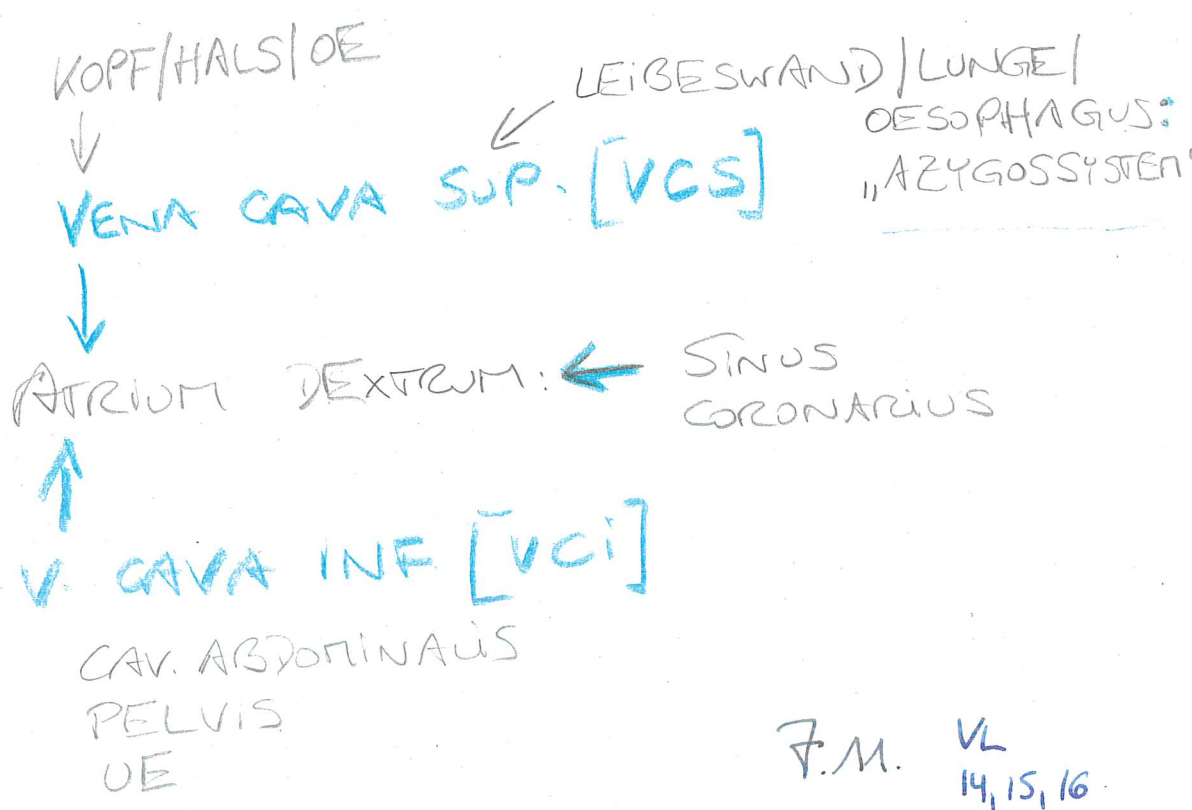 KOPF/HALS/OE
LEIBESWAND/LUNGE/
OESOPHAGUS:
„AZYGOSSYSTEM“
VENA CAVA SUP. [VCS]
ATRIUM DEXTRUM:
SINUS
CORONARIUS
V. CAVA INF [VCI]
CAV. ABDOMINALIS
PELVIS
UE
F.M.
VL
14, 15, 16